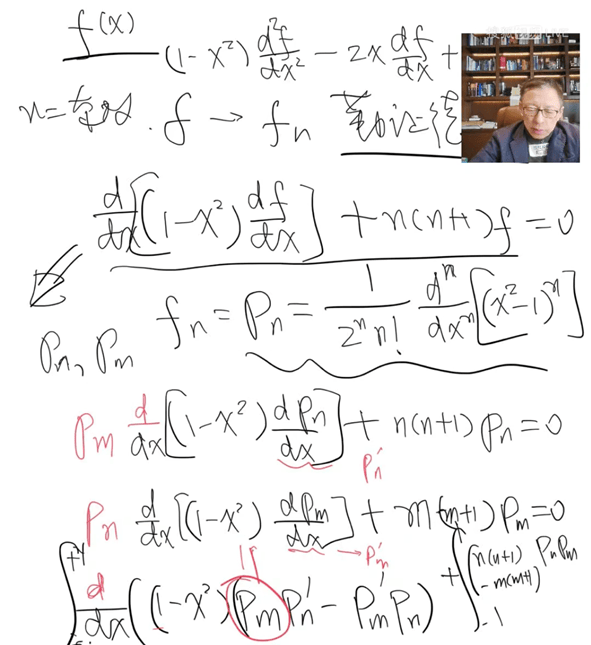 f(x)
(1-x²) d²f/dx² - 2x df/dx +
n= . f → fn
d/dx[(1-x²) df/dx] + n(n+1)f = 0
fn = Pn = 1/(2ⁿn!) dⁿ/dxⁿ [(x²-1)ⁿ]
Pn, Pm
Pm d/dx[(1-x²) dPn/dx] + n(n+1)Pn=0
Pn'
Pn d/dx[(1-x²) dPm/dx] + m(m+1)Pm=0
→Pm'
∫ d/dx((1-x²)(PmPn' - Pm'Pn) + ∫₋₁ (n(n+1) - m(m+1) PnPm